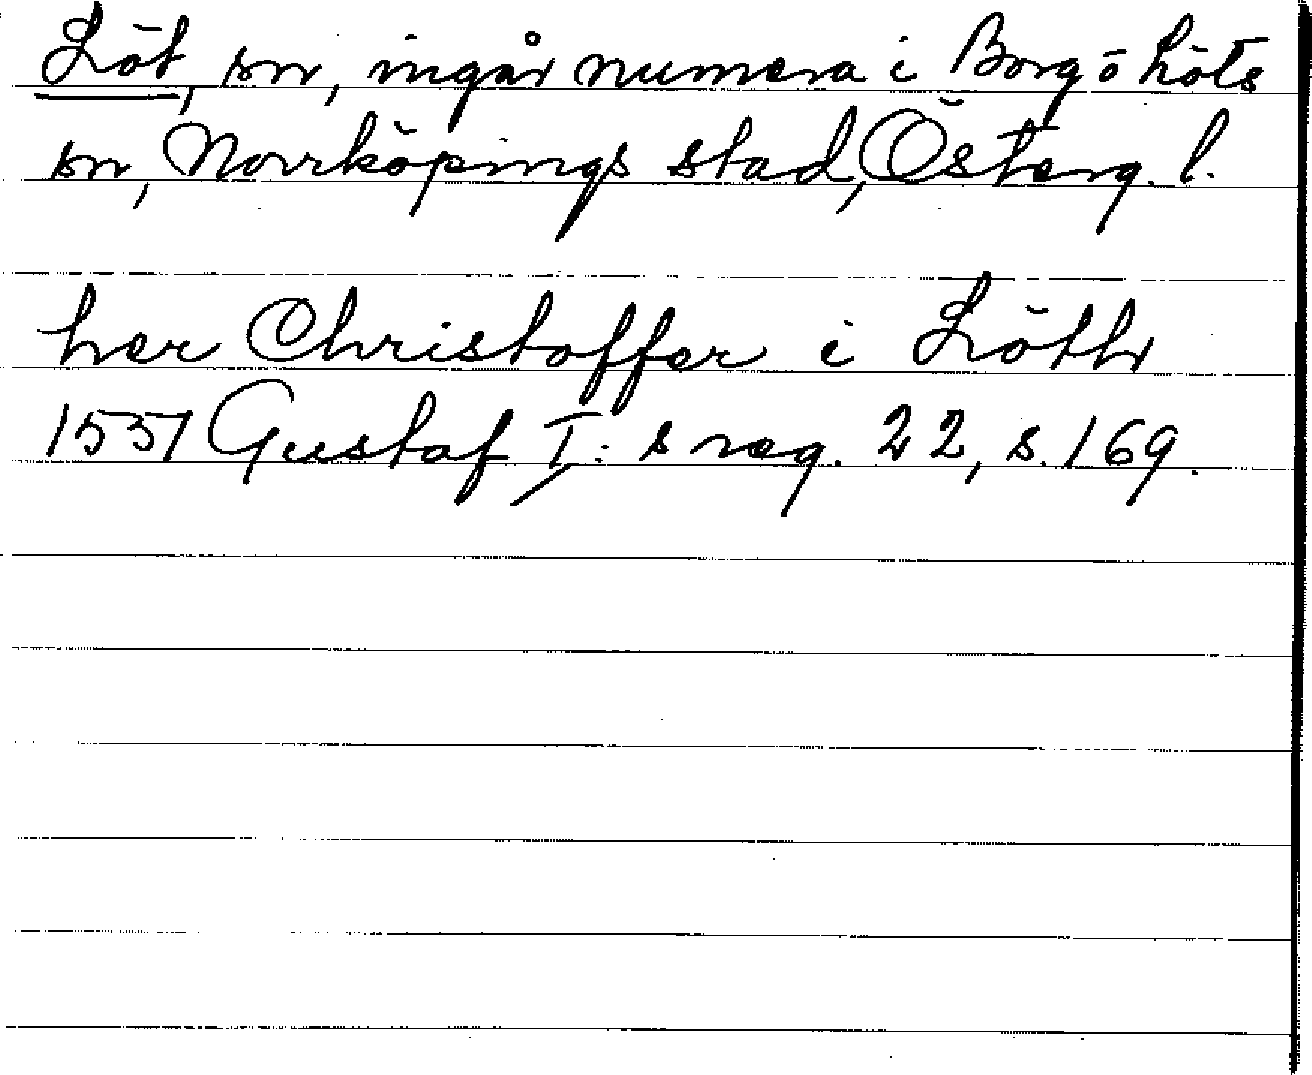 Löt, sn, ingår numera i Borg o Löts
sn, Norrköpings stad, Österg. l.
her Christoffer i Löth
1551 Gustaf I:s reg. 22, s. 169.